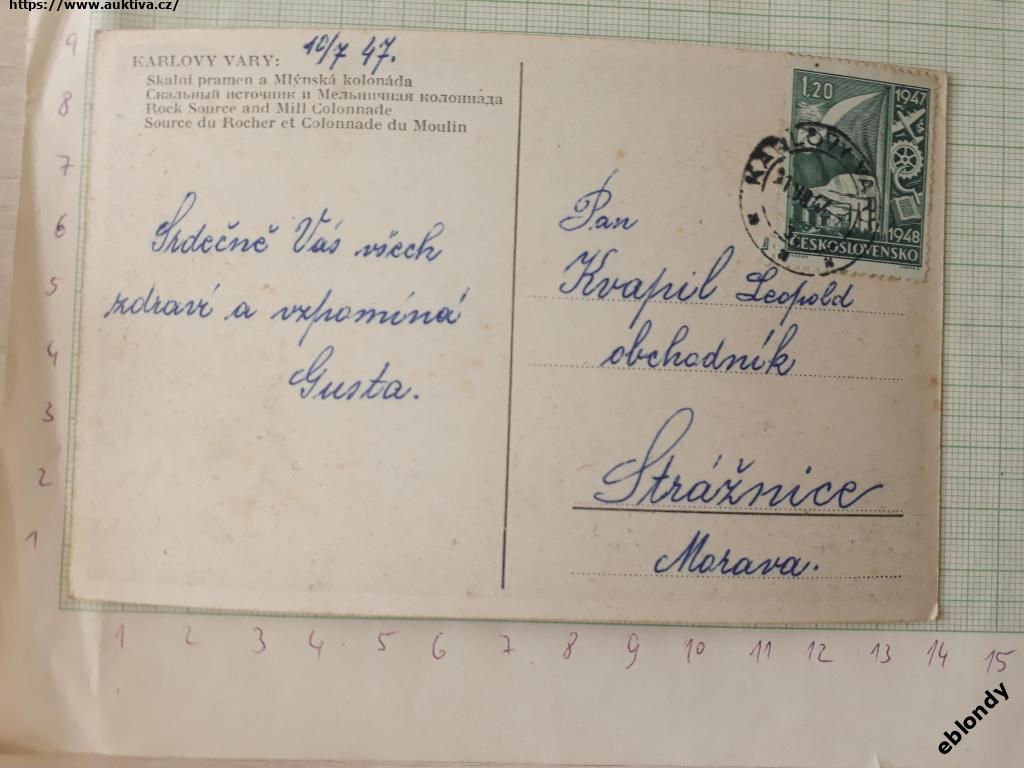 https://www.auktiva.cz/
KARLOVY VARY:
10/7 47.
Skalní pramen a Mlýnská kolonáda
Скальный источник и Мельничная колоннада
Rock Source and Mill Colonnade
Source du Rocher et Colonnade du Moulin
Srdečně Vás všech
zdraví a vzpomíná
Gusta.
1.20
1947
1948
ČESKOSLOVENSKO
KARLOVY VARY
Pan
Kvapil Leopold
obchodník
Strážnice
Morava.
9
8
7
6
5
4
3
2
1
1 2 3 4 5 6 7 8 9 10 11 12 13 14 15
eblondy